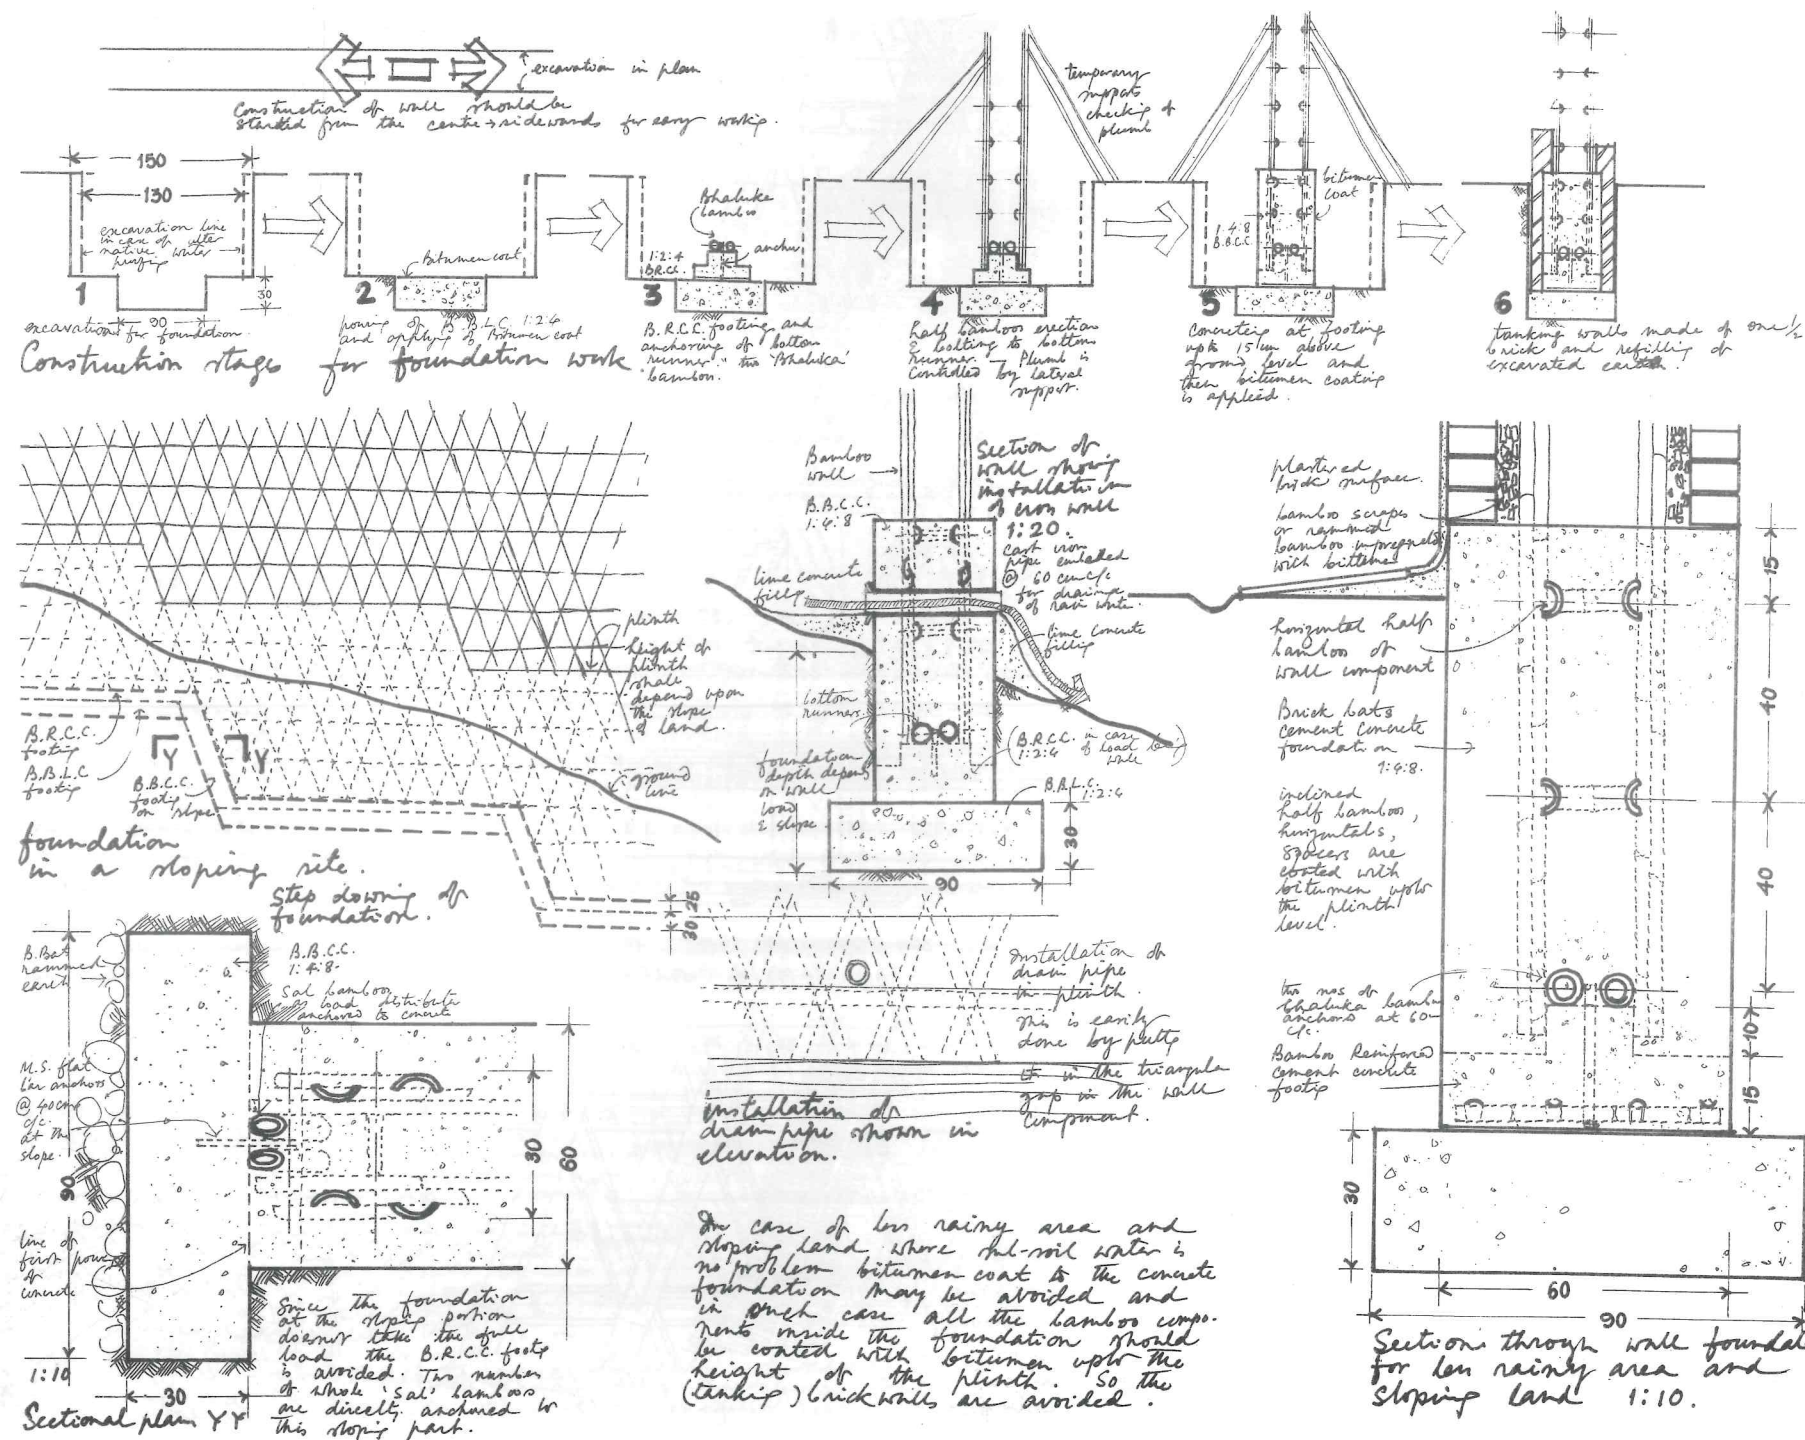 excavation in plan
Construction of wall should be
started from the centre → sidewards for easy working.
150
130
excavation line
in case of alter
native water
1
30
90
excavations for foundation.
Bitumen coat
2
pouring of B.B.L.C. 1:2:4
and applying of Bitumen coat
Bhaluka
bamboo
anchor
1:2:4
B.R.C.C.
3
B.R.C.C. footing and
anchoring of bottom
runner" two 'Bhaluka'
bamboo.
temporary
supports
checking of
plumb
4
half bamboos erection
& bolting to bottom
runner. — Plumb is
controlled by lateral
support.
bitumen
coat
1:4:8
B.B.C.C.
5
concreting at footing
upto 15cm above
ground level and
then bitumen coating
is applied.
6
tanking walls made of one ½
brick and refilling of
excavated earth.
Construction stages for foundation work
plinth
height of
plinth
shall
depend upon
the slope
of land.
B.R.C.C.
footing
B.B.L.C
footing
Y
Y
B.B.C.C.
footing
on slope
ground
line
foundation
in a sloping site.
Step downing of
foundation.
25
30
Bamboo
wall
B.B.C.C.
1:4:8
Section of
wall showing
installation
of cross wall
1:20.
cast iron
pipe embedded
@ 60 cm c/c
for drainage
of rain water.
lime concrete
filling
lime concrete
filling
bottom
runners
(B.R.C.C. in case
1:2:4 of load bearing
wall)
foundation
depth depends
on wall
load
& slope
B.B.L.C.
1:2:4
30
90
installation of
drain pipe
in plinth.
This is easily
done by putting
it in the triangular
gap in the wall
component.
installation of
drain pipe shown in
elevation.
In case of less rainy area and
sloping land where sub-soil water is
no problem bitumen coat to the concrete
foundation may be avoided and
in such case all the bamboo compo-
nents inside the foundation should
be coated with bitumen upto the
height of the plinth. So the
(tanking) brick walls are avoided.
B.Bat
rammed
earth
B.B.C.C.
1:4:8.
Sal bamboos
as load distributer
anchored to concrete
M.S. flat
bar anchors
@ 40cm
c/c.
at the
slope.
90
30
60
line of
first pouring
of
concrete
1:10
30
Sectional plan YY
Since the foundation
at the sloping portion
does not take the full
load the B.R.C.C. footing
is avoided. Two number
of whole 'Sal' bamboos
are directly anchored to
this sloping part.
plastered
brick surface.
bamboo scrapes
or rammed
bamboo impregnated
with bitumen
horizontal half
bamboo of
wall component
Brick bats
cement concrete
foundation
1:4:8.
inclined
half bamboo,
horizontals,
spacers are
coated with
bitumen upto
the plinth
level.
two nos of
bhaluka bamboo
anchors at 60
c/c.
Bamboo Reinforced
cement concrete
footing
15
40
40
10
15
30
60
90
Section through wall foundat
for less rainy area and
sloping land 1:10.